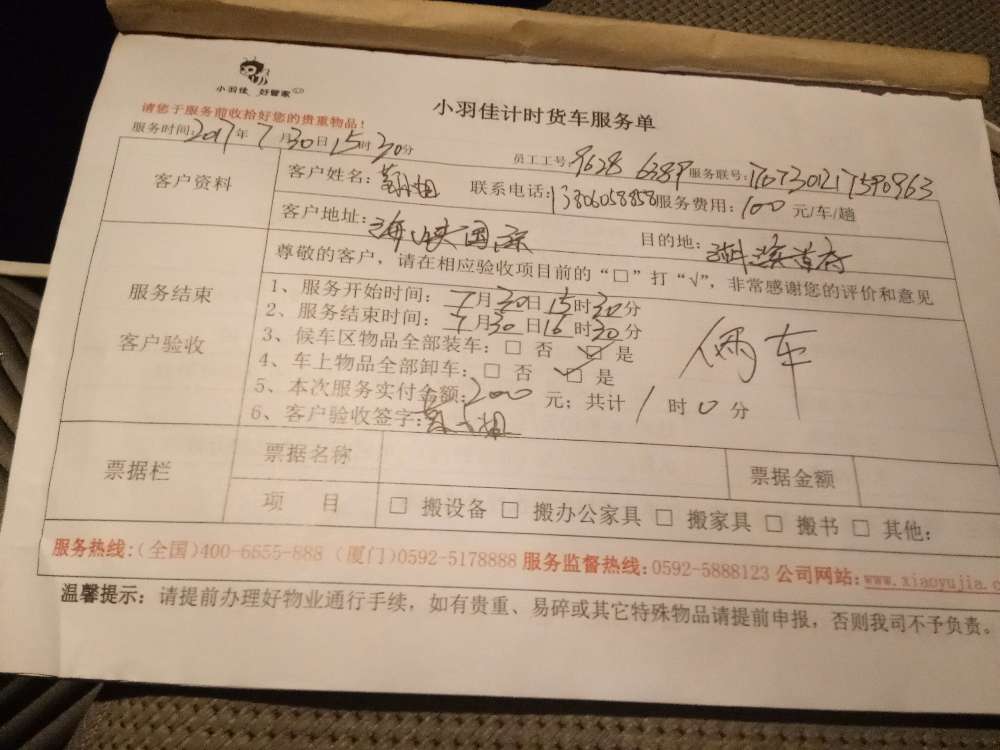 小羽佳 好管家
小羽佳计时货车服务单
请您于服务前收拾好您的贵重物品！
服务时间：2017年7月30日15时30分 员工工号：9628 6389 服务联号：
客户资料 客户姓名： 联系电话：13806058858 服务费用：100元/车/趟
客户地址：海峡国际 目的地：
尊敬的客户，请在相应验收项目前的“□”打“√”，非常感谢您的评价和意见
服务结束
客户验收
1、服务开始时间：7月30日15时30分
2、服务结束时间：7月30日16时30分
3、候车区物品全部装车：□ 否 ☑ 是
4、车上物品全部卸车：□ 否 ☑ 是
5、本次服务实付金额：200元；共计1时0分
6、客户验收签字：
俩车
票据栏 票据名称 票据金额
项 目 □ 搬设备 □ 搬办公家具 □ 搬家具 □ 搬书 □ 其他：
服务热线：（全国）400-6655-888 （厦门）0592-5178888 服务监督热线：0592-5888123 公司网站：www.xiaoyujia.c
温馨提示：请提前办理好物业通行手续，如有贵重、易碎或其它特殊物品请提前申报，否则我司不予负责。